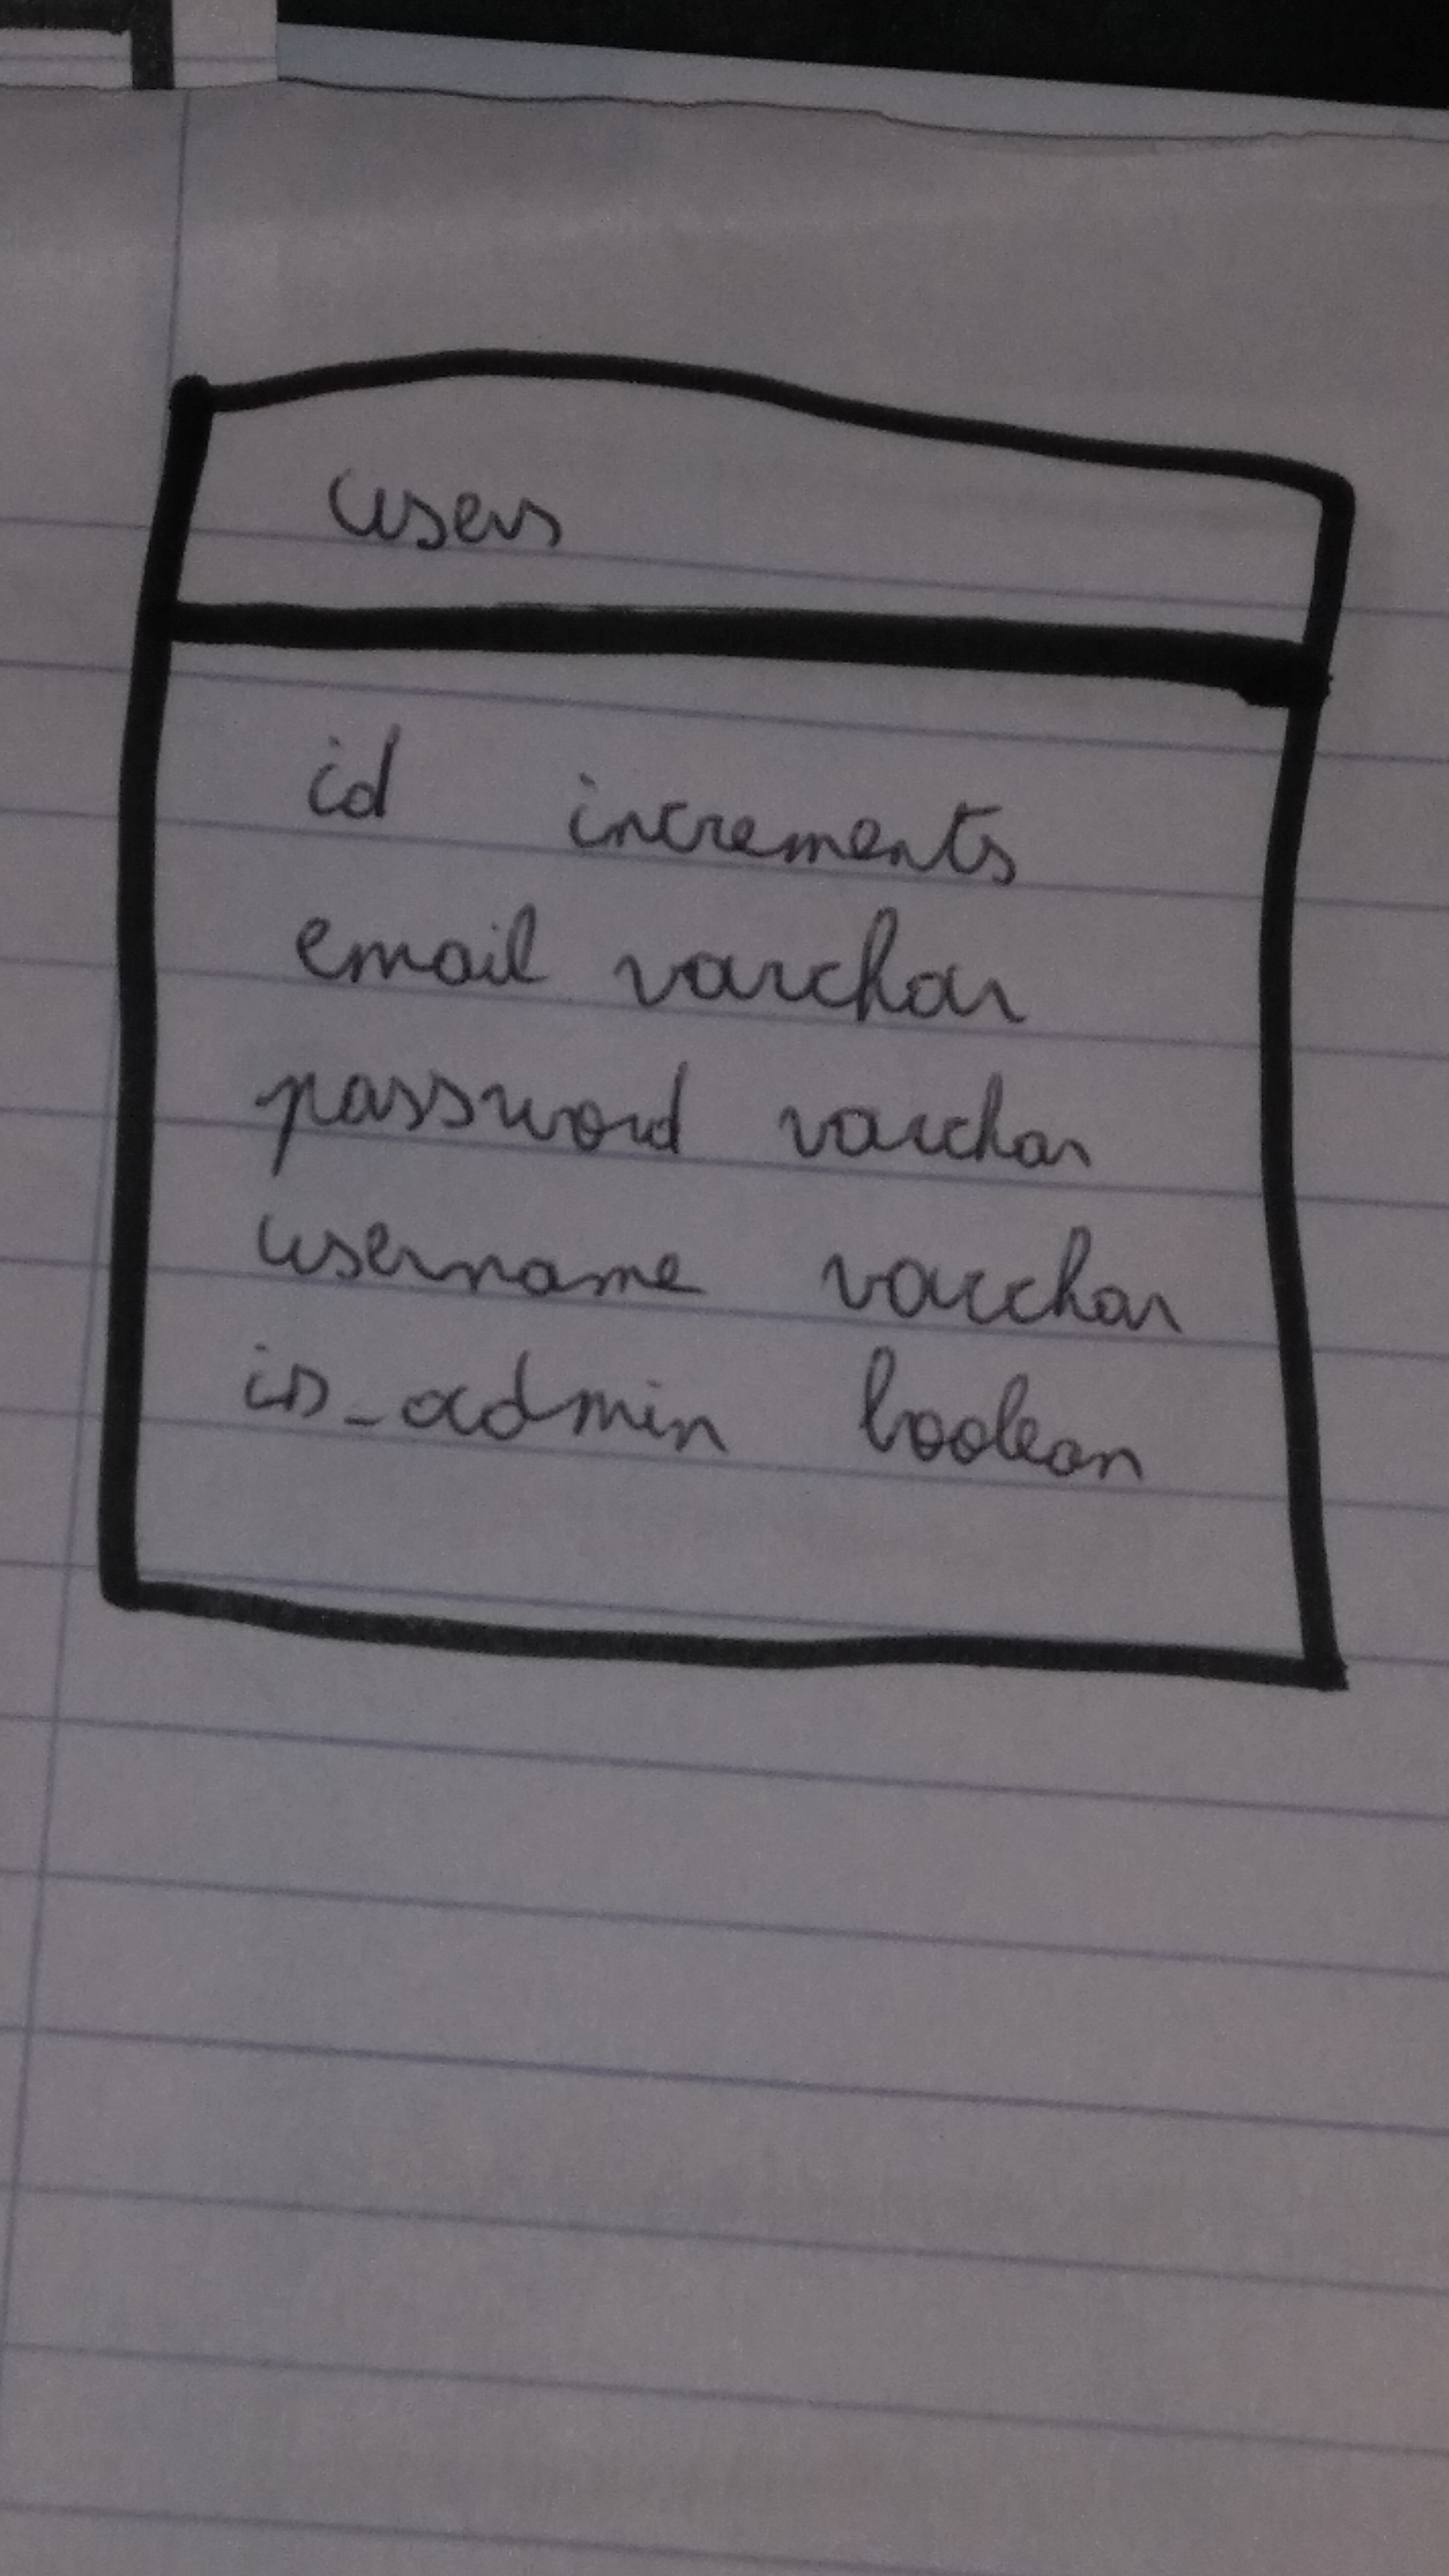 users
id increments
email varchar
password varchar
username varchar
is_admin boolean